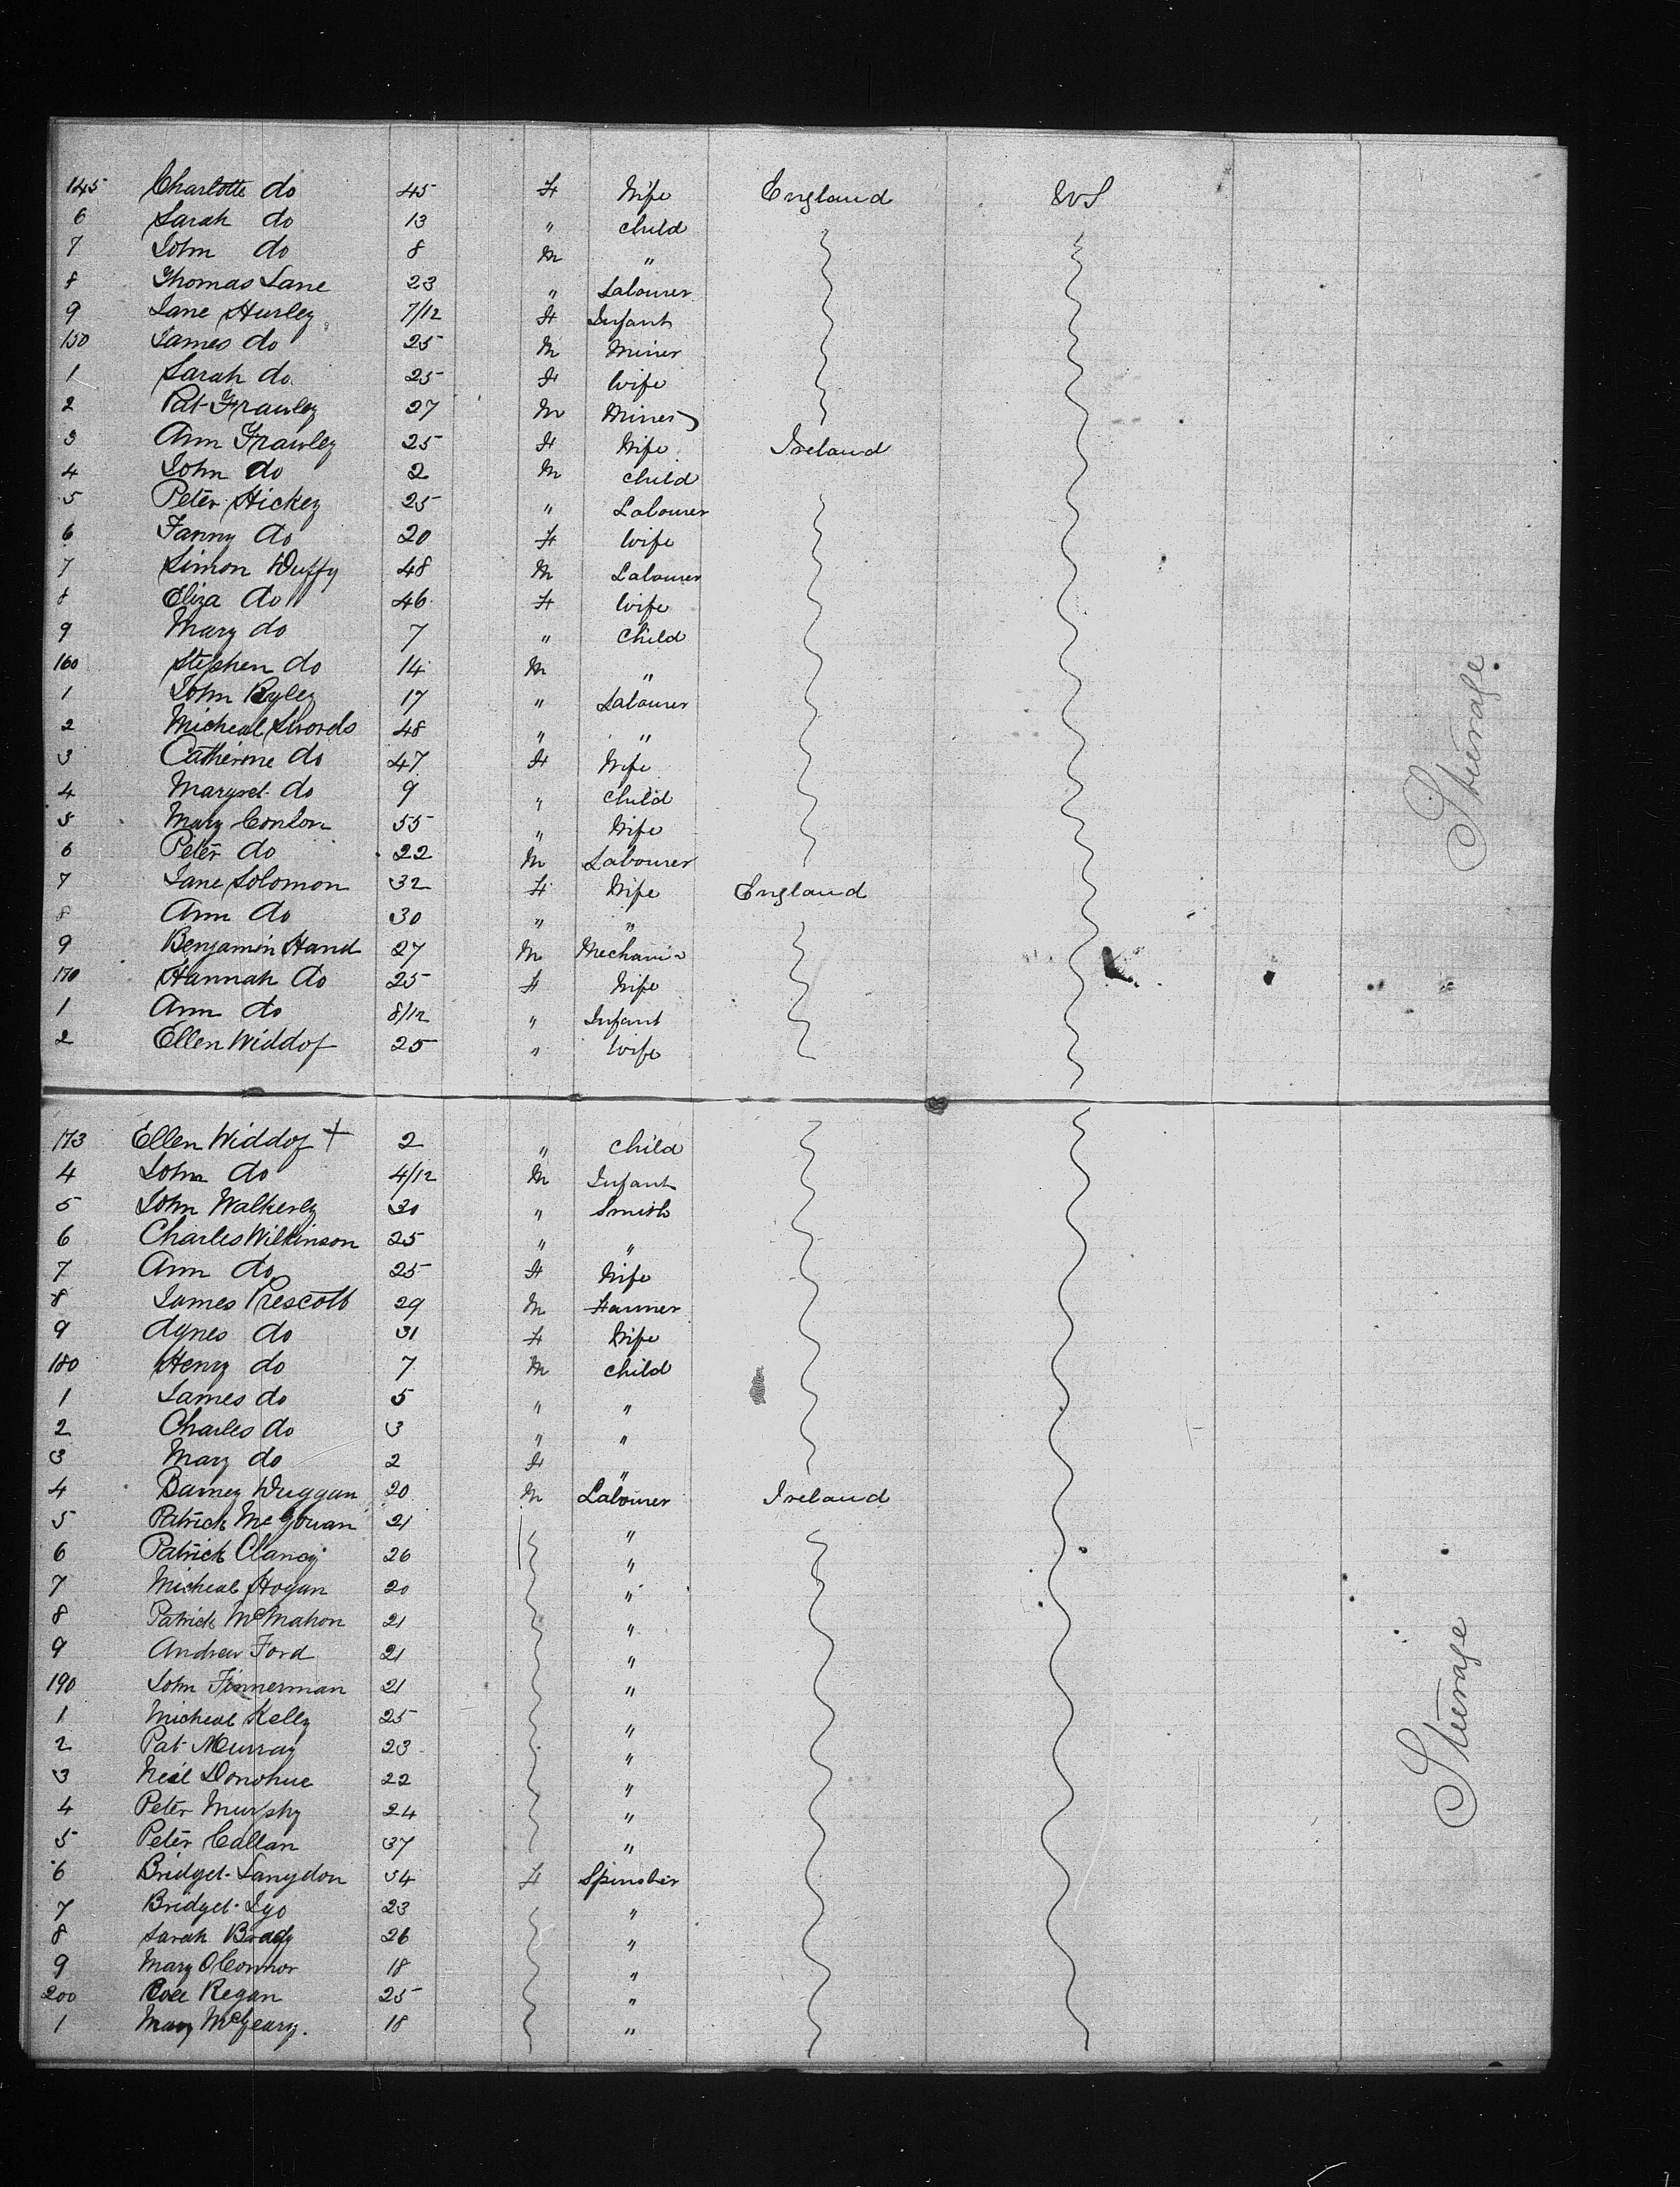 145 Charlotte do 45 F Wife England U S
6 Sarah do 13 " child
7 John do 8 M "
8 Thomas Lane 23 " Labourer
9 Jane Hurley 7/12 F Infant
150 James do 25 M Miner
1 Sarah do 25 F Wife
2 Pat Frawley 27 M Miner
3 Ann Frawley 25 F Wife Ireland
4 John do 2 M child
5 Peter Hickey 25 " Labourer
6 Fanny do 20 F Wife
7 Simon Duffy 48 M Labourer
8 Eliza do 46 F Wife
9 Mary do 7 " child
160 Stephen do 14 M "
1 John Ryley 17 " Labourer
2 Micheal Swords 48 " "
3 Catherine do 47 F Wife
4 Margret do 9 " child
5 Mary Conlon 55 " Wife
6 Peter do 22 M Labourer
7 Jane Solomon 32 F Wife England
8 Ann do 30 " "
9 Benjamin Hand 27 M Mechanic
170 Hannah do 25 F Wife
1 Ann do 8/12 " Infant
2 Ellen Widdof 25 " Wife
Steerage
173 Ellen Widdof + 2 " child
4 John do 4/12 M Infant
5 John Walkerly 30 " Smith
6 Charles Wilkinson 25 " "
7 Ann do 25 F Wife
8 James Prescott 29 M Farmer
9 Agnes do 31 F Wife
180 Henry do 7 M child
1 James do 5 " "
2 Charles do 3 " "
3 Mary do 2 F "
4 Barney Duggan 20 M Labourer Ireland
5 Patrick McGowan 21 "
6 Patrick Clancy 26 "
7 Micheal Hogan 20 "
8 Patrick McMahon 21 "
9 Andrew Ford 21 "
190 John Finnerman 21 "
1 Micheal Kelly 25 "
2 Pat Murray 23 "
3 Neil Donohue 22 "
4 Peter Murphy 24 "
5 Peter Callan 37 "
6 Bridget Langdon 34 F Spinster
7 Bridget Igo 23 "
8 Sarah Brady 26 "
9 Mary OConnor 18 "
200 Regan 25 "
1 Mary McGeary. 18 "
Steerage